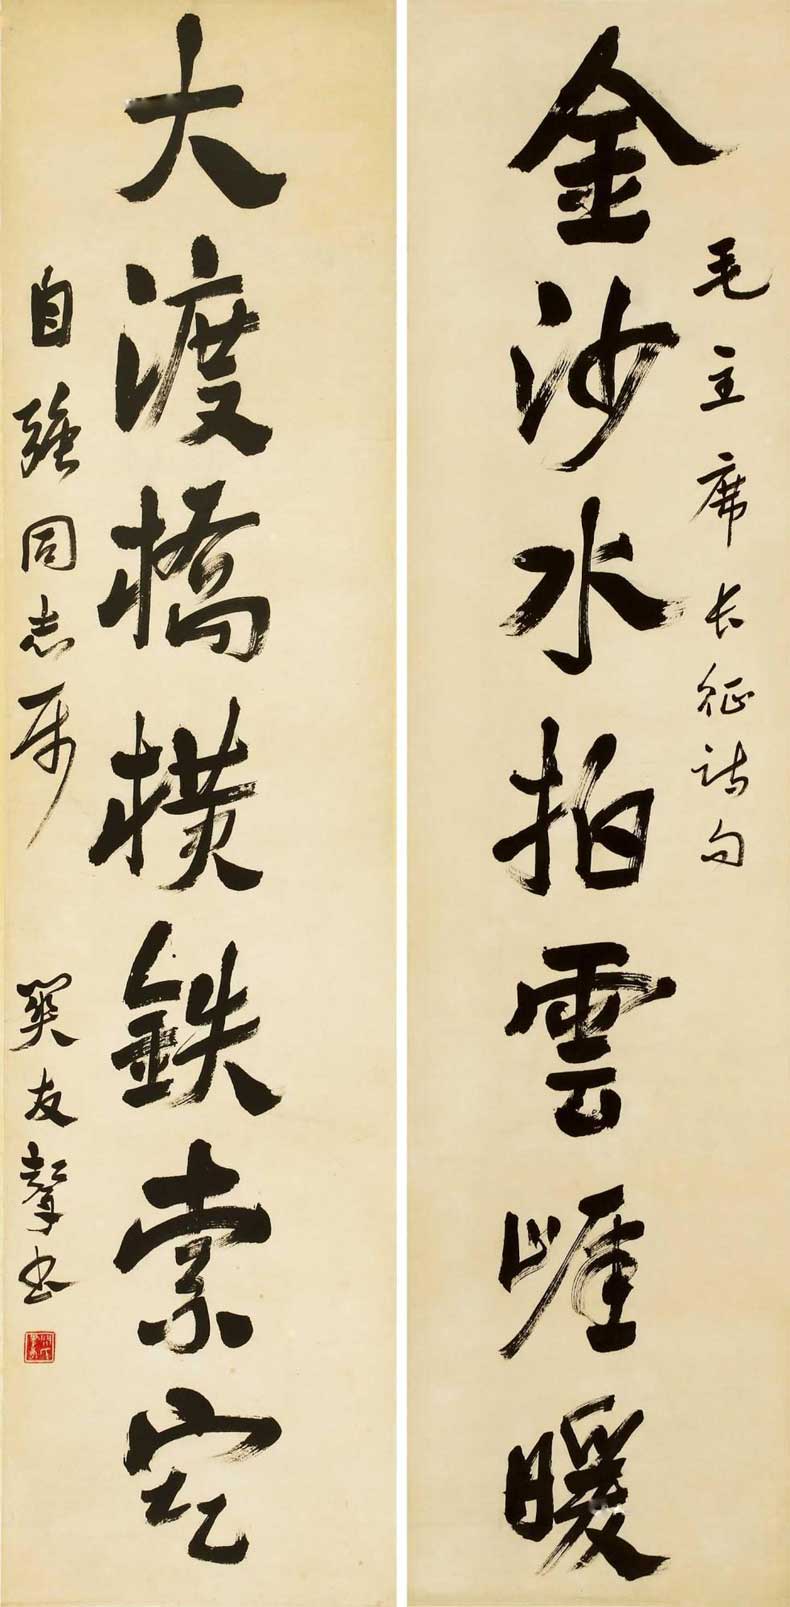 毛主席长征诗句
金沙水拍雲崕暖
大渡橋横鉄索寒
自强同志属 關友聲书